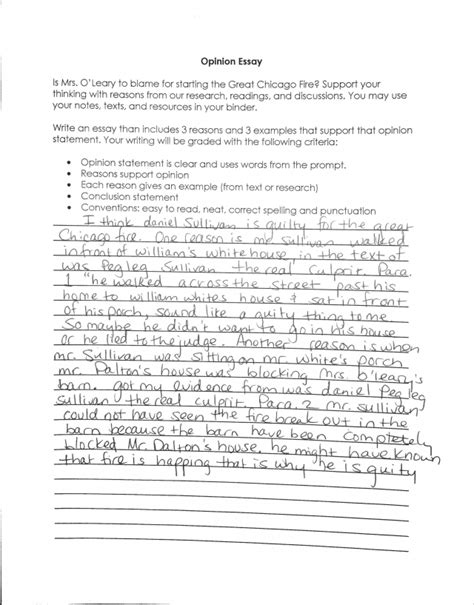 Opinion Essay
Is Mrs. O'Leary to blame for starting the Great Chicago Fire? Support your
thinking with reasons from our research, readings, and discussions. You may use
your notes, texts, and resources in your binder.
Write an essay than includes 3 reasons and 3 examples that support that opinion
statement. Your writing will be graded with the following criteria:
• Opinion statement is clear and uses words from the prompt.
• Reasons support opinion
• Each reason gives an example (from text or research)
• Conclusion statement
• Conventions: easy to read, neat, correct spelling and punctuation
I think daniel Sullivan is guilty for the great
Chicago fire. One reason is mr sullivan walked
in front of william's whitehouse, in the text of
was Peg leg Sullivan the real Culprit. Para.
1 "he walked across the street past his
home to william whites house & sat in front
of his porch, sound like a guity thing to me.
So maybe he didn't want to go in his house
or he lied to the judge. Another reason is when
mr. Sullivan was sitting on mr. white's porch
mr. Dalton's house was blocking Mrs. O'leary's
barn. got my evidence from was daniel Peg leg
sullivan the real culprit. Para. 2 mr. sullivan
could not have seen the fire break out in the
barn because the barn have been completely
blocked Mr. Dalton's house. he might have known
that fire is happing that is why he is guity